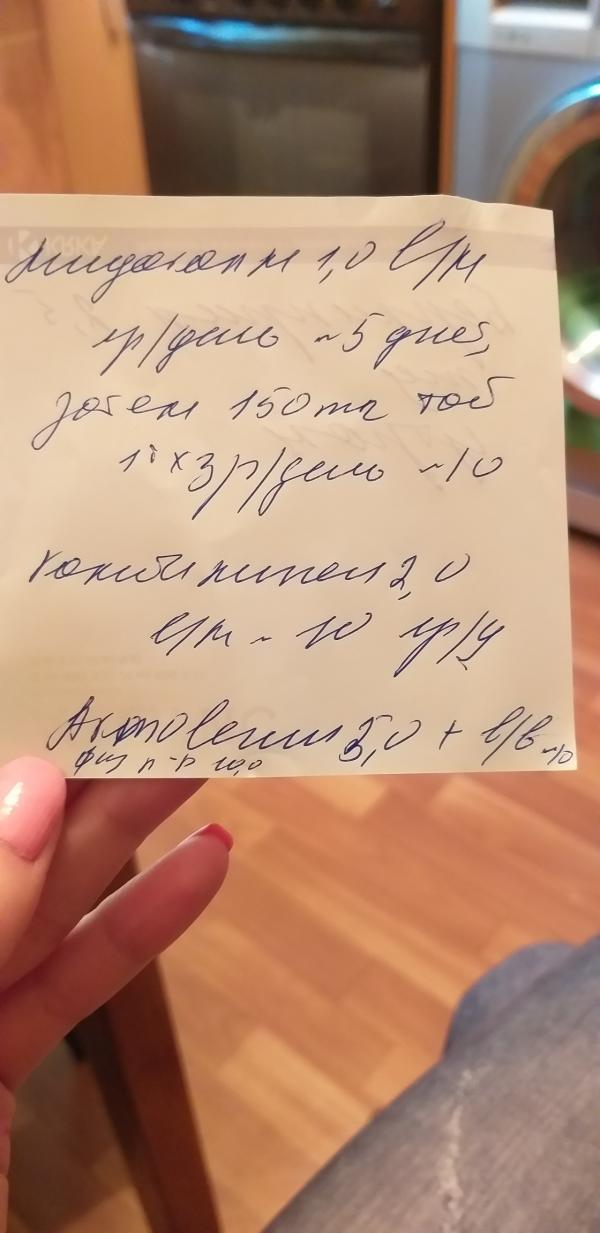 Мидокалм 1,0 в/м
1р/день ~ 5 дней,
затем 150 mg таб
1т x 3 р/день ~ 10
Комбилипен 2,0
в/м ~ 10 1р/д
Актовегин 5,0 + в/в ~10
физ р-р 10,0